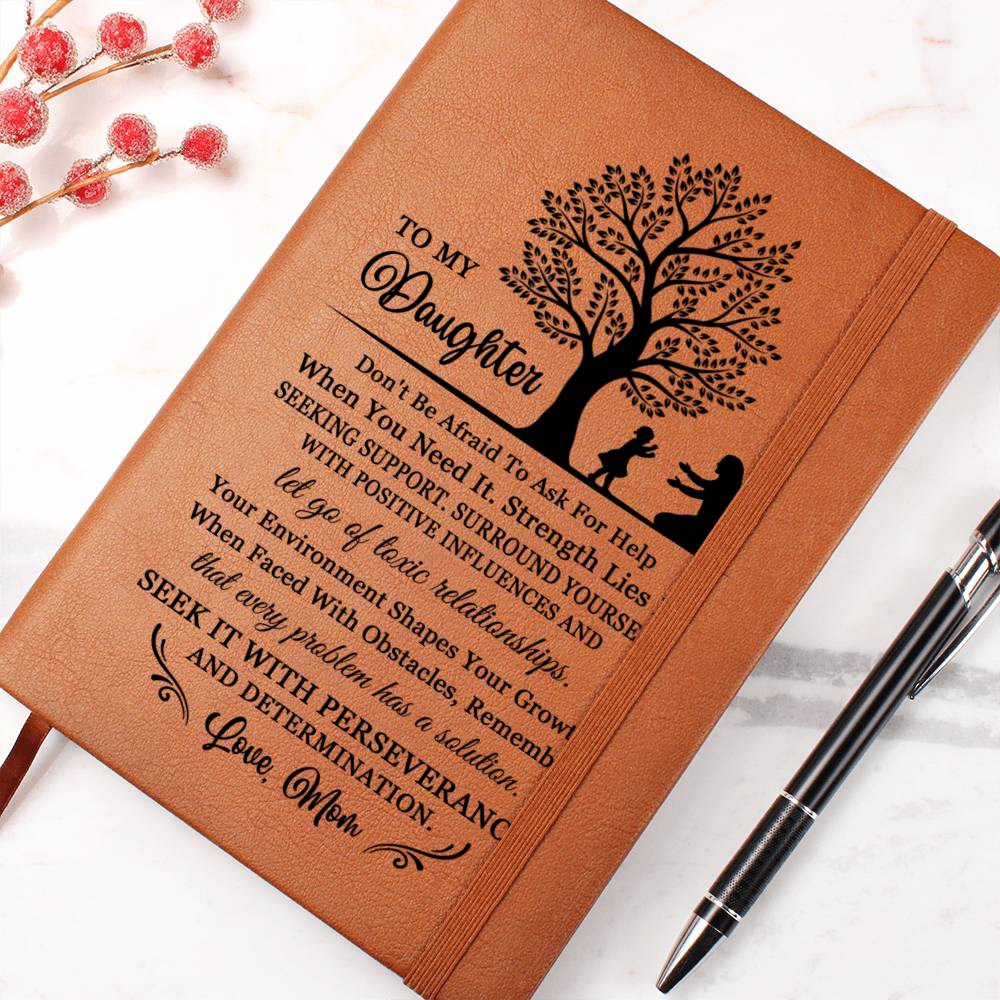 TO MY
Daughter
Don't Be Afraid To Ask For Help
When You Need It. Strength Lies
SEEKING SUPPORT. SURROUND YOURSE
WITH POSITIVE INFLUENCES AND
let go of toxic relationships.
Your Environment Shapes Your Growt
When Faced With Obstacles, Rememb
that every problem has a solution.
SEEK IT WITH PERSEVERANC
AND DETERMINATION.
Love, Mom